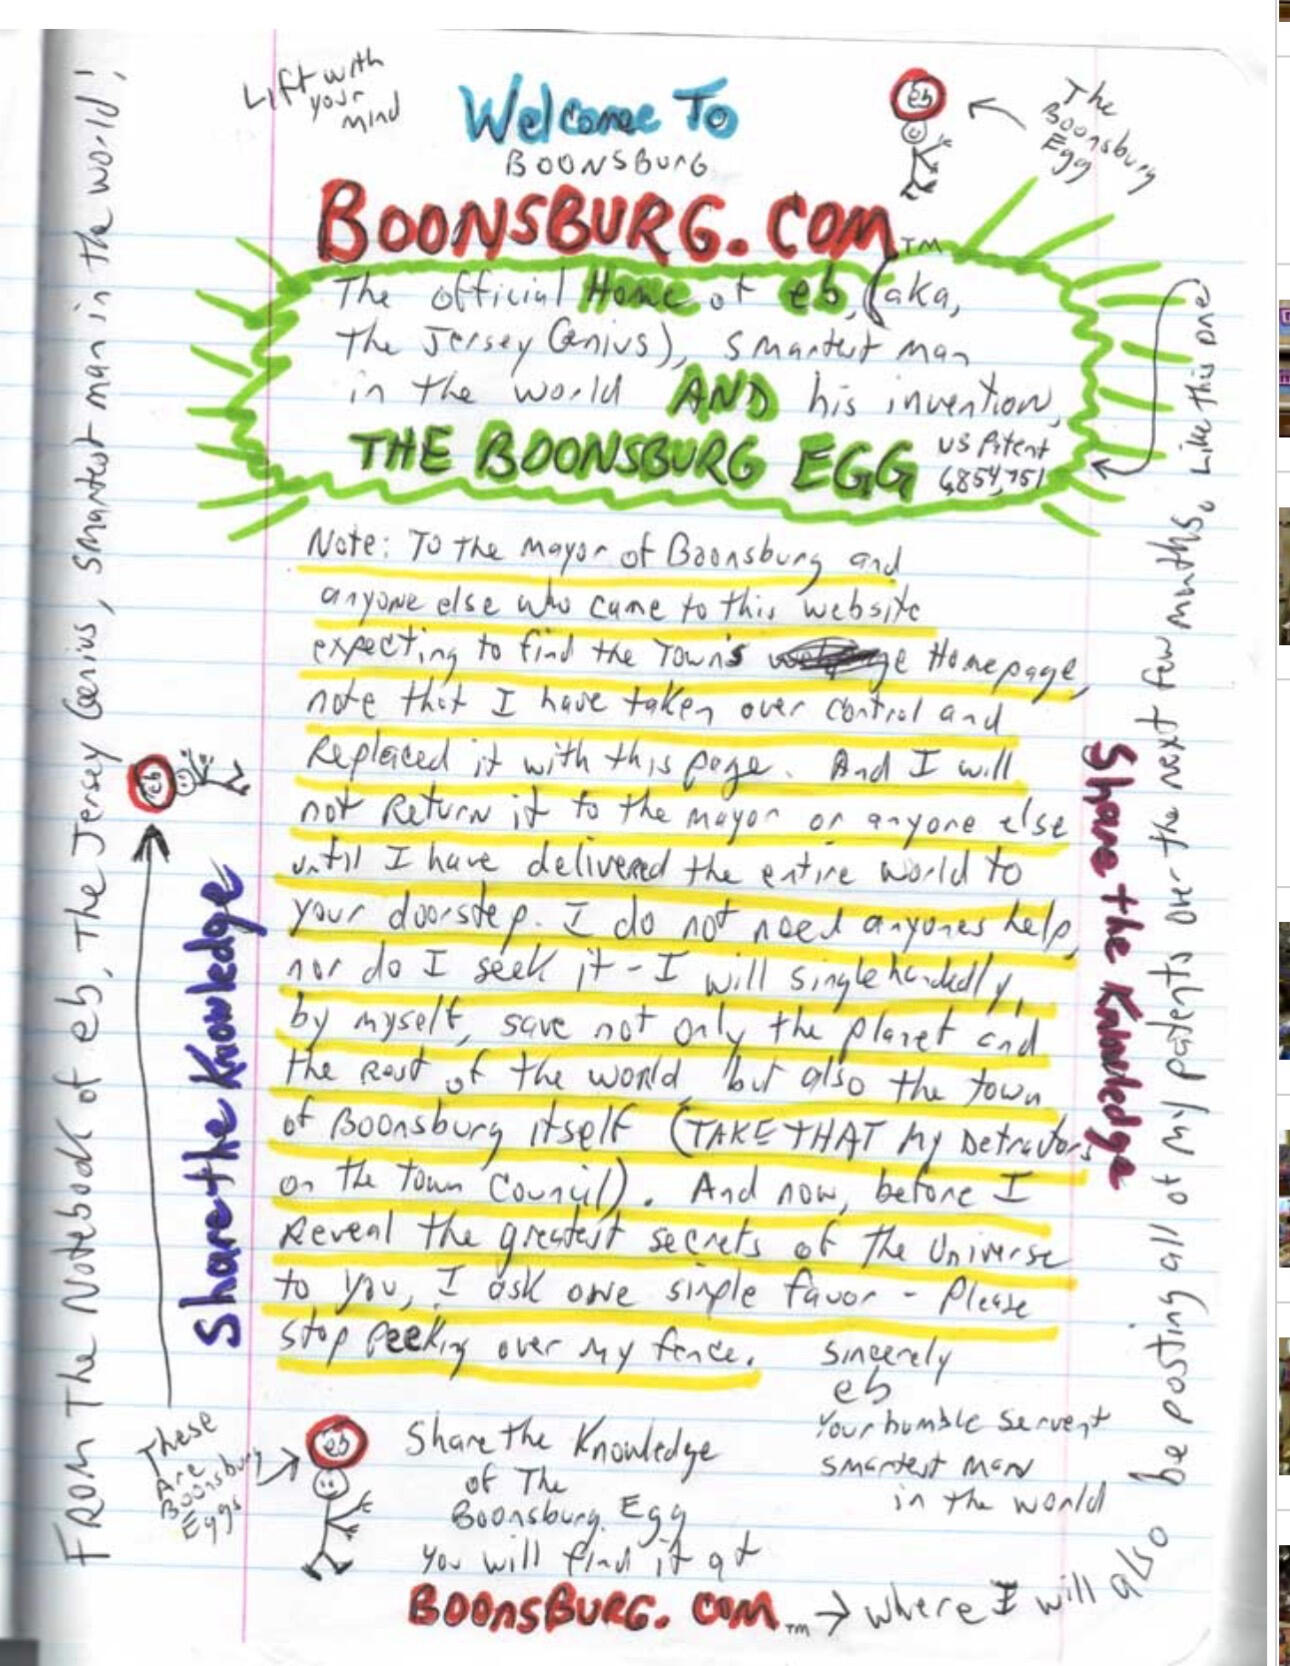 Lift with
your
mind
Welcome To
BOONSBURG
BOONSBURG.COM TM
eb
The
Boonsburg
Egg
The official Home of eb, (aka,
The Jersey Genius), smartest man
in the world AND his invention,
THE BOONSBURG EGG
US Patent
6,854,751
Note: To the mayor of Boonsburg and
anyone else who came to this website
expecting to find the Town's Homepage,
note that I have taken over control and
Replaced it with this page. And I will
not Return it to the mayor or anyone else
until I have delivered the entire world to
your doorstep. I do not need anyones help,
nor do I seek it - I will single handedly,
by myself, save not only the planet and
the rest of the world but also the town
of Boonsburg itself (TAKE THAT My Detractors
on the Town Council). And now, before I
Reveal the greatest secrets of the Universe
to you, I ask one simple favor - Please
stop peeking over my fence.
sincerely
eb
Your humble servent
smartest man
in the world
eb
Share the Knowledge
of The
Boonsburg Egg
You will find it at
BOONSBURG.COM TM → where I will also
be posting all of my patents over the next few months. Like this one
Share the Knowledge
From The Notebook of eb, The Jersey Genius, smartest man in the world!
Share the Knowledge
eb
These
Are
Boonsburg
Eggs